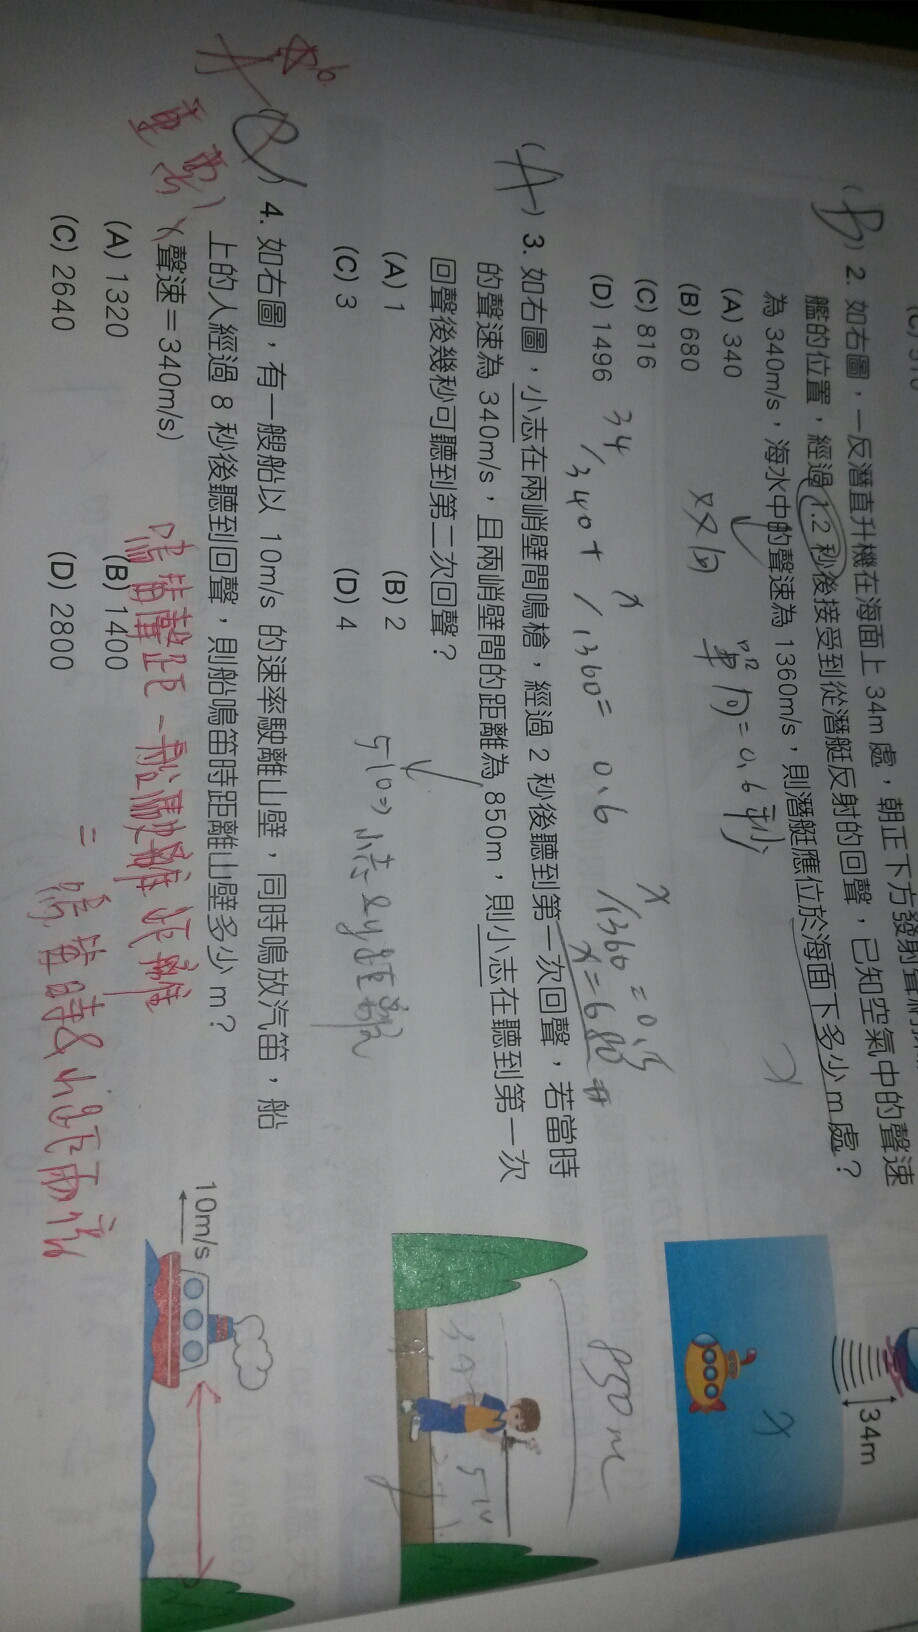 (B) 2. 如右圖，一反潛直升機在海面上 34m 處，朝正下方發射聲
艦的位置，經過 1.2 秒後接受到從潛艇反射的回聲，已知空氣中的聲速
為 340m/s，海水中的聲速為 1360m/s，則潛艇應位於海面下多少 m 處？
(A) 340
(B) 680
(C) 816
(D) 1496
雙向
單向=0.6秒
34/340 + x/1360 = 0.6
x/1360 = 0.5
x=680 #
34m
x
(A) 3. 如右圖，小志在兩峭壁間鳴槍，經過 2 秒後聽到第一次回聲，若當時
的聲速為 340m/s，且兩峭壁間的距離為 850m，則小志在聽到第一次
回聲後幾秒可聽到第二次回聲？
(A) 1
(B) 2
(C) 3
(D) 4
510⇒小志&y距離
850m
340
510
4. 如右圖，有一艘船以 10m/s 的速率駛離山壁，同時鳴放汽笛，船
上的人經過 8 秒後聽到回聲，則船鳴笛時距離山壁多少 m？
(聲速＝340m/s)
重要
(A) 1320
(B) 1400
(C) 2640
(D) 2800
鳴笛聲距－船駛離距離
10m/s